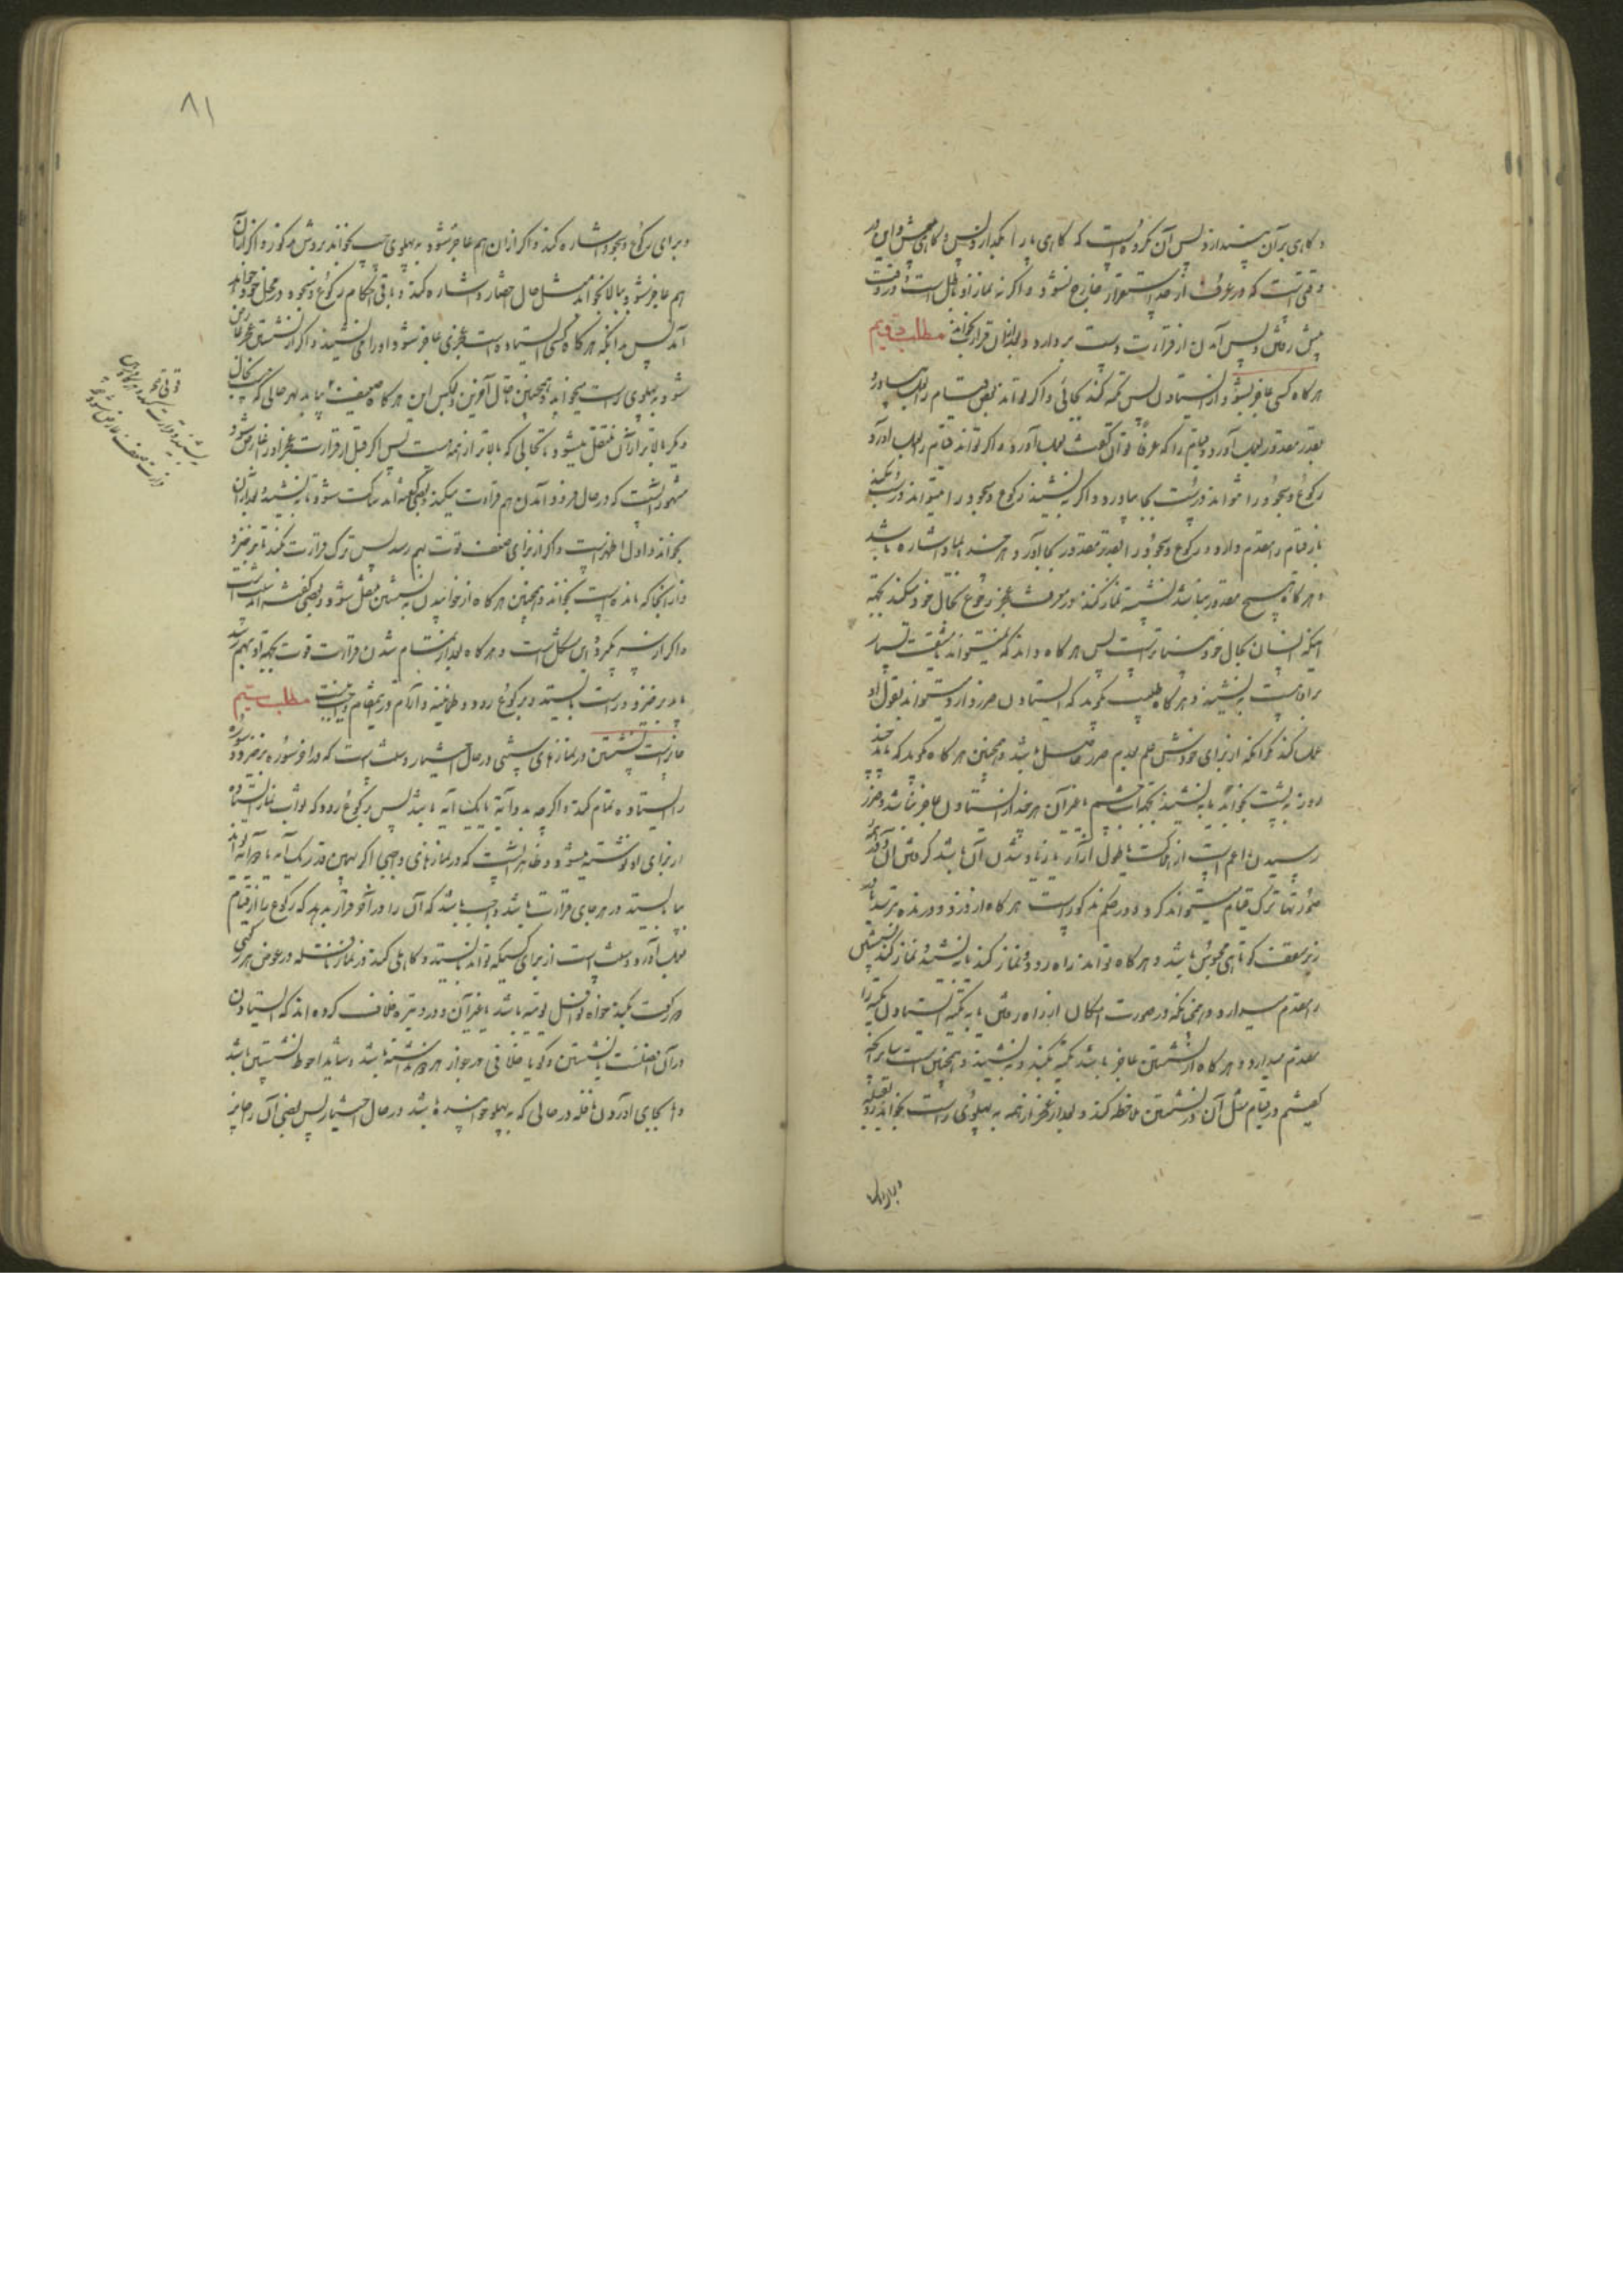 و کاهی بر آن بیندازد پس آن مکروه است که کاهی پا را بگذارد پس و کاهی پیش و این در
وقتی است که در عرف از حد استقرار خارج نشود و اگر نه نماز او باطل است و در وقت
پیش رفتن و پس آمدن از قرائت دست بردارد و بعد از آن قرار بخواند مطلب دویم
هر کاه کسی عاجز بشود از ایستادن پس تکیه کند بجائی و اگر تواند بعض قیام را بعمل بیاورد
بقدر مقدور بعمل آورد و قیام را که عرفا توان گفت بعمل آورد و اگر تواند قیام را بعمل آورد
رکوع و سجود را نتواند درست بجا بیاورد و اگر بنشیند رکوع و سجود را میتواند درست بکند
باز قیام را مقدم دارد و رکوع و سجود را بقدر مقدور بجا آورد هر چند بایما و اشاره باشد
و هر کاه هیچ مقدور نباشد نشسته نماز کند و در معرفت عجز رجوع بحال خود میکند بجهة
اینکه انسان بحال خود بیناتر است پس هر کاه داند که نمیتواند مشقت بسیار
بر او هست بنشیند و هر کاه طبیب بگوید که ایستادن ضرر دارد میتواند بقول او
عمل کند مگر آنکه از برای خودش علم بعدم ضرر حاصل باشد و همچنین هر کاه بگوید که باید چند
روز به پشت بخوابد یا بنشیند بجهة چشم یا غیر آن هر چند از ایستادن عاجز نباشد و ضرر
رسیدن اعم است از اینکه طول آزار یا زیاد شدن آن باشد
نتواند ترک قیام میتواند کرد و در حکم مذکور است هر کاه از دزد و درنده بترسد یا در
زیر سقف کوتاهی محبوس باشد و هر کاه تواند راه رود و نماز کند یا بنشیند نماز کند پیش
را مقدم میدارد و همچنانکه در صورت امکان از راه رفتن یا به تکیه ایستادن تکیه را
مقدم میدارد و هر کاه از نشستن عاجز باشد تکیه بکند و بنشیند و همچنین است سایر آنچه
کفتیم در قیام مثل آن در نشستن ملاحظه کند و بعد از عجز از همه به پهلوی راست بخوابد رو بقبله
و برای
۸۱
و برای رکوع و سجود اشاره کند و اگر از آن هم عاجز شود به پهلوی چپ بخوابد بروش مذکور و اگر از آن
هم عاجز شود به بالا بخوابد مثل حال احتضار و اشاره کند و باقی احکام رکوع و سجود در محل خود خواهد
آمد پس بدانکه هر کاه کسی ایستاده است عجزی عاجز شود او را می نشیند و اگر از نشستن عاجز
شود به پهلوی راست میخوابد و همچنین تا حال آخرین و بعکس این هر کاه ضعیف بیابد بهر حالی که هست بحال
دیگر بالاتر از آن منتقل میشود تا بحالی که بالاتر از همه است پس اگر قبل از قرائت عجز او را عارض شود
مشهور آنست که در حال فرود آمدن هم قرائت میکند و بعضی گفته اند ساکت شود تا بنشیند و بعد از آن
بخواند و اول اظهر است و اگر از برای ضعیف قوت بهم رسد پس ترک قرائت بکند تا برخیزد
و از آنجا که مانده است بخواند و همچنین هر کاه از خوابیدن به نشستن منتقل شود و بعضی گفته اند
و اگر از سر بگیرد این مشکل است و هر کاه بعد از تمام شدن قرائت قوت بجهة او بهم رسد
باید برخیزد و راست بایستد و برکوع رود و طمانینه و آرام در این مقام واجب نیست مطلب سیم
جایز است نشستن در نمازهای سنتی در حال اختیار و سنت است که در آخر سوره برخیزد و سوره
را ایستاده تمام کند و اگر چه بدو آیة یا یک آیه باشد پس برکوع رود که ثواب نماز ایستاده
از برای او نوشته میشود و ظاهر آنست که در نمازهای واجبی اگر بهمین قدر یک آیه یا دو آیه تواند
بایستد در هر جای قرائت باشد واجب باشد که آن را در آخر قرار بدهد که رکوع را از قیام
بعمل آورد و سنت است از برای کسیکه تواند بایستد و کاهلی کند در نماز نافله در عوض هر رکعتی
دو رکعت بکند خواه نوافل یومیه باشد یا غیر آن و در وتیره خلاف کرده اند که ایستادن
در آن افضل است یا نشستن و گویا خلافی در جواز هر دو نداشته باشد و شاید احوط نشستن باشد
و اما بجای آوردن نافله در حالی که به پهلو خوابیده باشد در حال اختیار پس بعضی آن را جایز